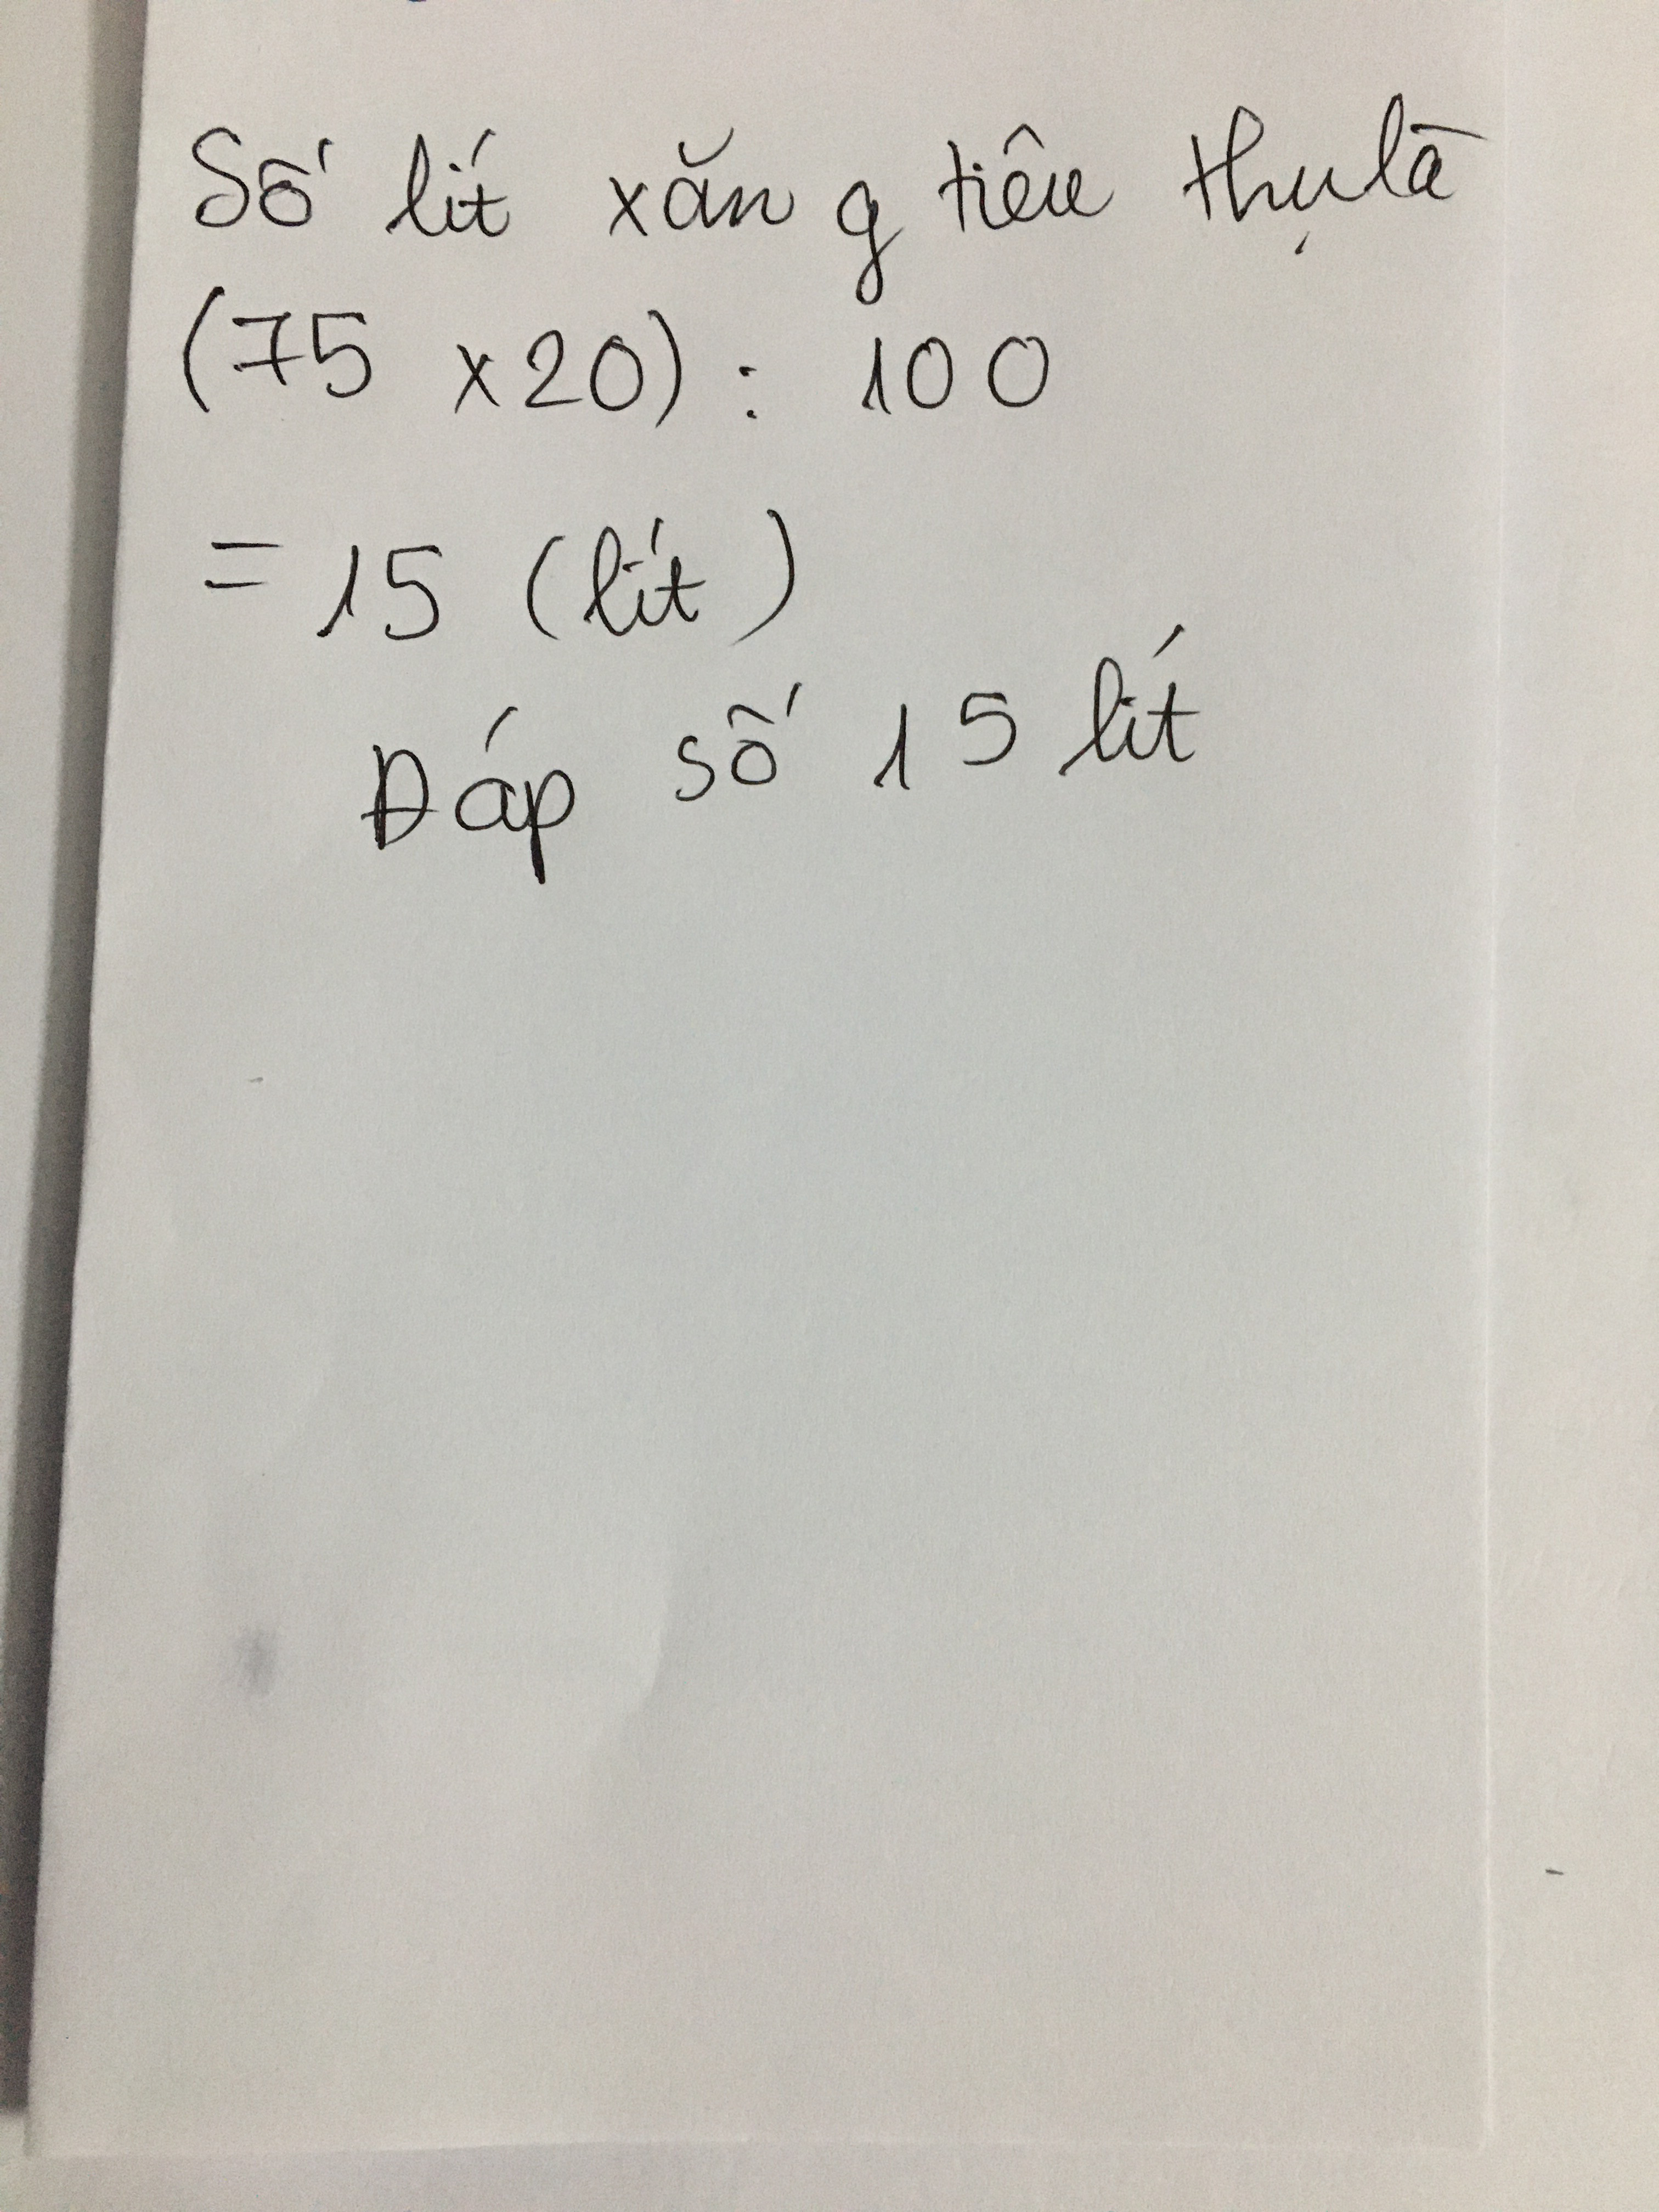 Số lít xăng tiêu thụ là
(75 x20) : 100
= 15 (lít)
Đáp số 15 lít